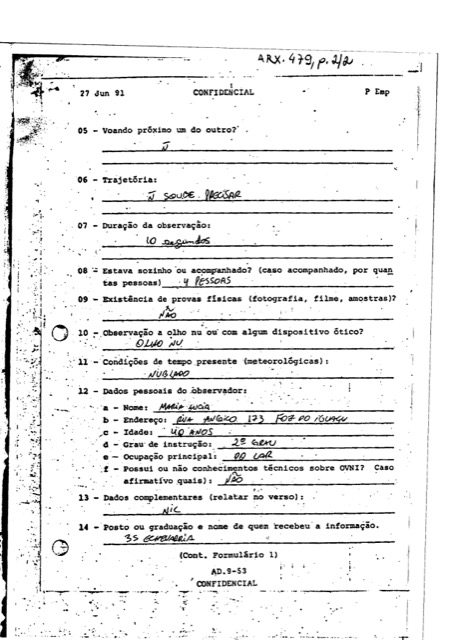 ARX. 479, p.2/2
27 Jun 91 CONFIDENCIAL P Emp
05 - Voando próximo um do outro?
06 - Trajetória:
Ñ SOUBE PRECISAR
07 - Duração da observação:
10 segundos
08 - Estava sozinho ou acompanhado? (caso acompanhado, por quan
tas pessoas) 4 PESSOAS
09 - Existência de provas físicas (fotografia, filme, amostras)?
NÃO
10 - Observação a olho nu ou com algum dispositivo ótico?
OLHO NU
11 - Condições de tempo presente (meteorológicas):
NUBLADO
12 - Dados pessoais do observador:
a - Nome: MARIA LUCIA
b - Endereço: RUA ANGICO 173 FOZ DO IGUAÇU
c - Idade: 40 ANOS
d - Grau de instrução: 2º GRAU
e - Ocupação principal: DO LAR
f - Possui ou não conhecimentos técnicos sobre OVNI? Caso
afirmativo quais): NÃO
13 - Dados complementares (relatar no verso):
NIC
14 - Posto ou graduação e nome de quem recebeu a informação.
3S
(Cont. Formulário 1)
AD.9-53
CONFIDENCIAL